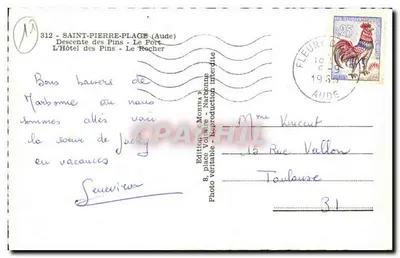 12
312 - SAINT-PIERRE-PLAGE (Aude)
Descente des Pins - Le Port
L'Hôtel des Pins - Le Rocher
Bons baisers de
Narbonne où nous
sommes allés voir
la soeur de Jacky
en vacances
Geneviève
Edition MONTES
8, place Voltaire - Narbonne
Photo véritable - Reproduction interdite
FLEURY
AUDE
0,25
Mme Vincent
13 Rue Vallon
Toulouse
31
Cartorum